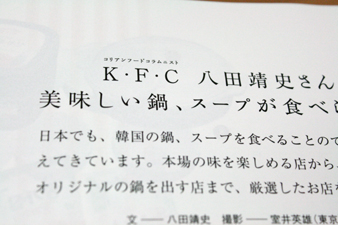 コリアンフードコラムニスト
K・F・C 八田靖史さん
美味しい鍋、スープが食べ
日本でも、韓国の鍋、スープを食べることので
えてきています。本場の味を楽しめる店から、
オリジナルの鍋を出す店まで、厳選したお店を
文──八田靖史 撮影──室井英雄(東京